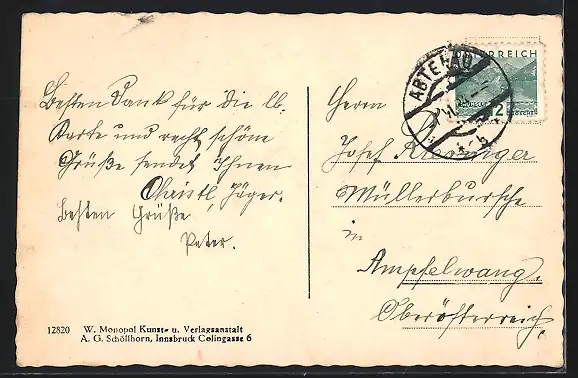 Besten Dank für die lb.
Karte und recht schöne
Grüße sendet Ihnen
Christl Jäger.
Besten Grüße
Peter.
12820 W. Monopol Kunst- u. Verlagsanstalt
A. G. Schöllhorn, Innsbruck Colingasse 6
ABTENAU
ÖSTERREICH
2
GROSCHEN
Herrn
Josef
Müllerbursche
in
Ampfelwang.
Oberösterreich.